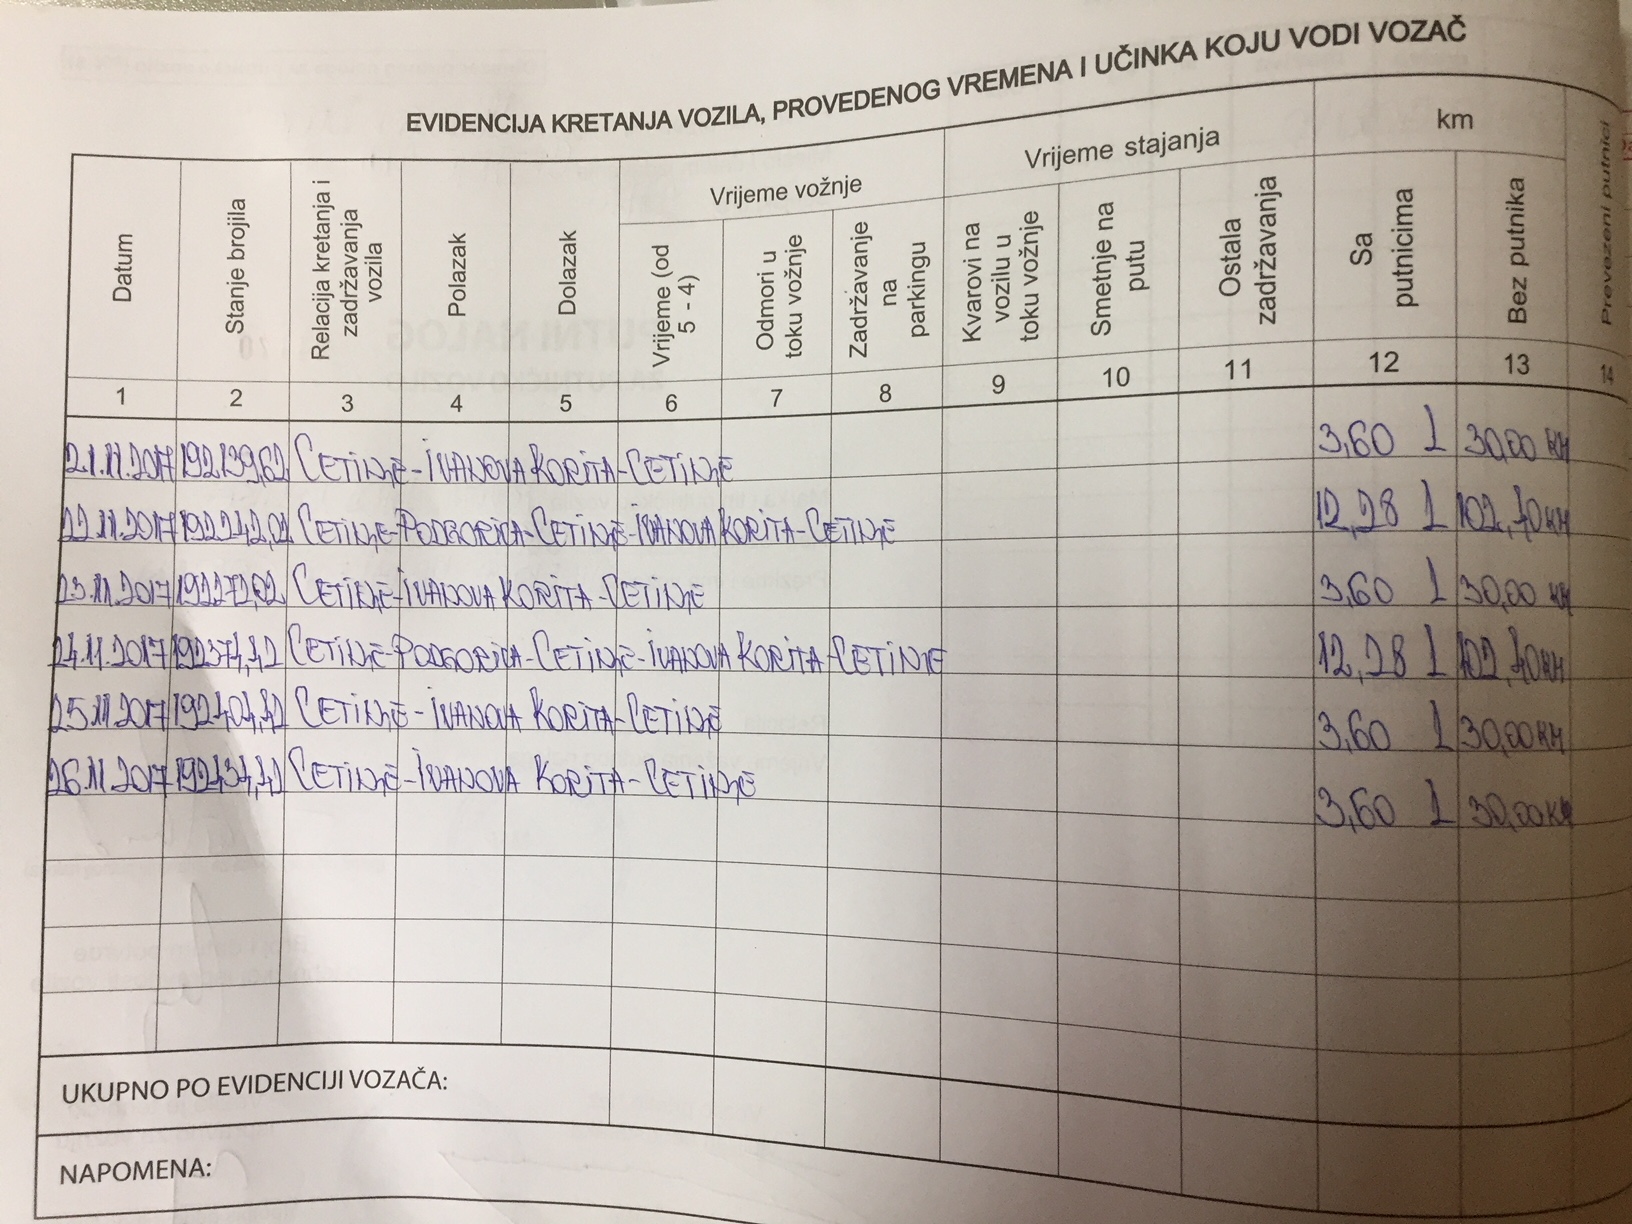 EVIDENCIJA KRETANJA VOZILA, PROVEDENOG VREMENA I UČINKA KOJU VODI VOZAČ
Datum
Stanje brojila
Relacija kretanja i zadržavanja vozila
Polazak
Dolazak
Vrijeme vožnje
Vrijeme (od 5 - 4)
Odmori u toku vožnje
Zadržavanje na parkingu
Vrijeme stajanja
Kvarovi na vozilu u toku vožnje
Smetnje na putu
Ostala zadržavanja
km
Sa putnicima
Bez putnika
Prevezeni putnici
1 2 3 4 5 6 7 8 9 10 11 12 13 14
21.11.2017 192139,62 CETINJE-IVANOVA KORITA-CETINJE 3,60 L 30,00 KM
22.11.2017 192242,02 CETINJE-PODGORICA-CETINJE-IVANOVA KORITA-CETINJE 12,28 L 102,40 KM
23.11.2017 192272,02 CETINJE-IVANOVA KORITA-CETINJE 3,60 L 30,00 KM
24.11.2017 192374,42 CETINJE-PODGORICA-CETINJE-IVANOVA KORITA-CETINJE 12,28 L 102,40 KM
25.11.2017 192404,42 CETINJE-IVANOVA KORITA-CETINJE 3,60 L 30,00 KM
26.11.2017 192434,42 CETINJE-IVANOVA KORITA-CETINJE 3,60 L 30,00 KM
UKUPNO PO EVIDENCIJI VOZAČA:
NAPOMENA: